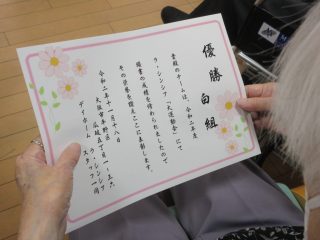 優勝白組
貴殿のチームは、令和二年度
ラ・シンシア「大運動会」にて
頭書の成績を修められましたので
その栄誉を讃えここに表彰します。
令和二年十一月十八日
大阪市平野区
デイホーム ラ・シンシア
スタッフ一同